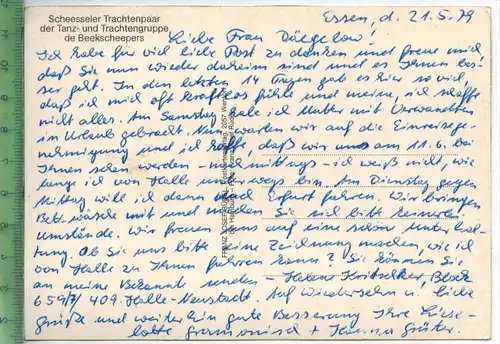 Scheesseler Trachtenpaar
der Tanz- und Trachtengruppe
de Beekscheepers
Essen, d. 21.5.79
Liebe Frau
Ich habe für viel liebe Post zu danken und freue mich
daß Sie nun wieder daheim sind und es Ihnen bes-
ser geht. In den letzten 14 Tagen gab es hier so viel,
daß ich mich oft kraftlos fühle und meine, ich schaffe
nicht alles. Am Samstag habe ich Mutter mit Verwandten
in Urlaub gebracht. Nun warten wir auf die Einreisege-
nehmigung und ich hoffe, daß wir uns am 11.6. bei
Ihnen sehen werden - nachmittags - ich weiß nicht, wie
lange ich von Halle unterwegs bin. Am Dienstag gegen
Mittag will ich dann nach Erfurt fahren. Wir bringen
Bettwäsche mit und machen Sie sich bitte keinerlei
Umstände. Wir freuen uns auf eine schöne Unterhal-
tung. Ob Sie uns bitte eine Zeichnung machen, wie ich
von Halle zu Ihnen fahren kann? Sie können Sie
an meine Bekannte senden - Helene Block
659/7 409 Halle-Neustadt. Auf Wiedersehn u. liebe
Grüße und weiterhin gute Besserung Ihre Liese-
lotte + Hanna